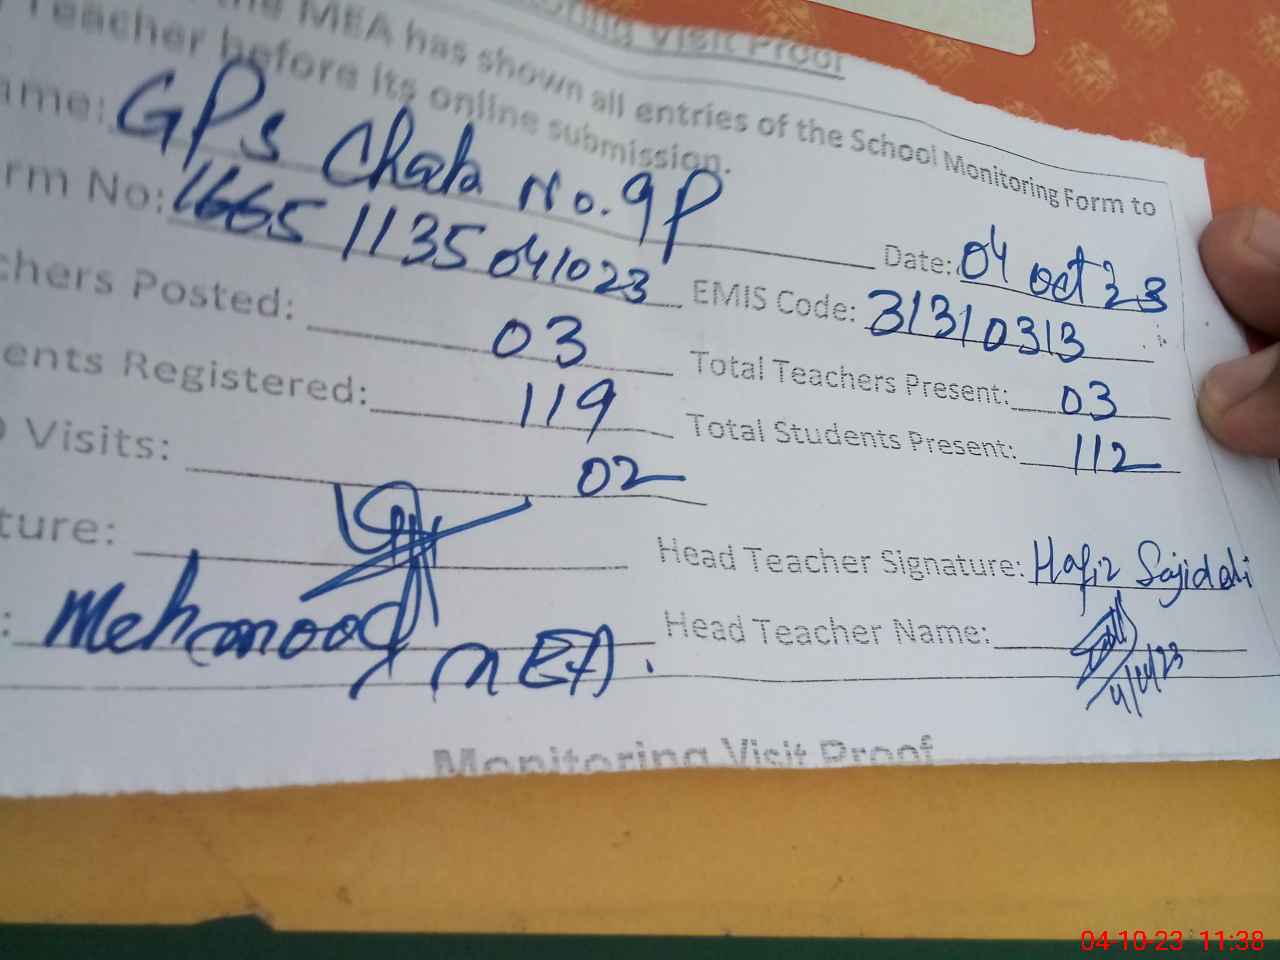 ring Visit Proof
the MEA has shown all entries of the School Monitoring Form to
Teacher before its online submission.
ame: GPS Chah No. 9P Date: 04 Oct 23
rm No: 16651135041023 EMIS Code: 31310313
chers Posted: 03 Total Teachers Present: 03
ents Registered: 119 Total Students Present: 112
Visits: 02
ture: Head Teacher Signature: Hafiz Sajid Ali
: Mehmood MEA. Head Teacher Name:
4/10/23
Monitoring Visit Proof
04-10-23 11:38